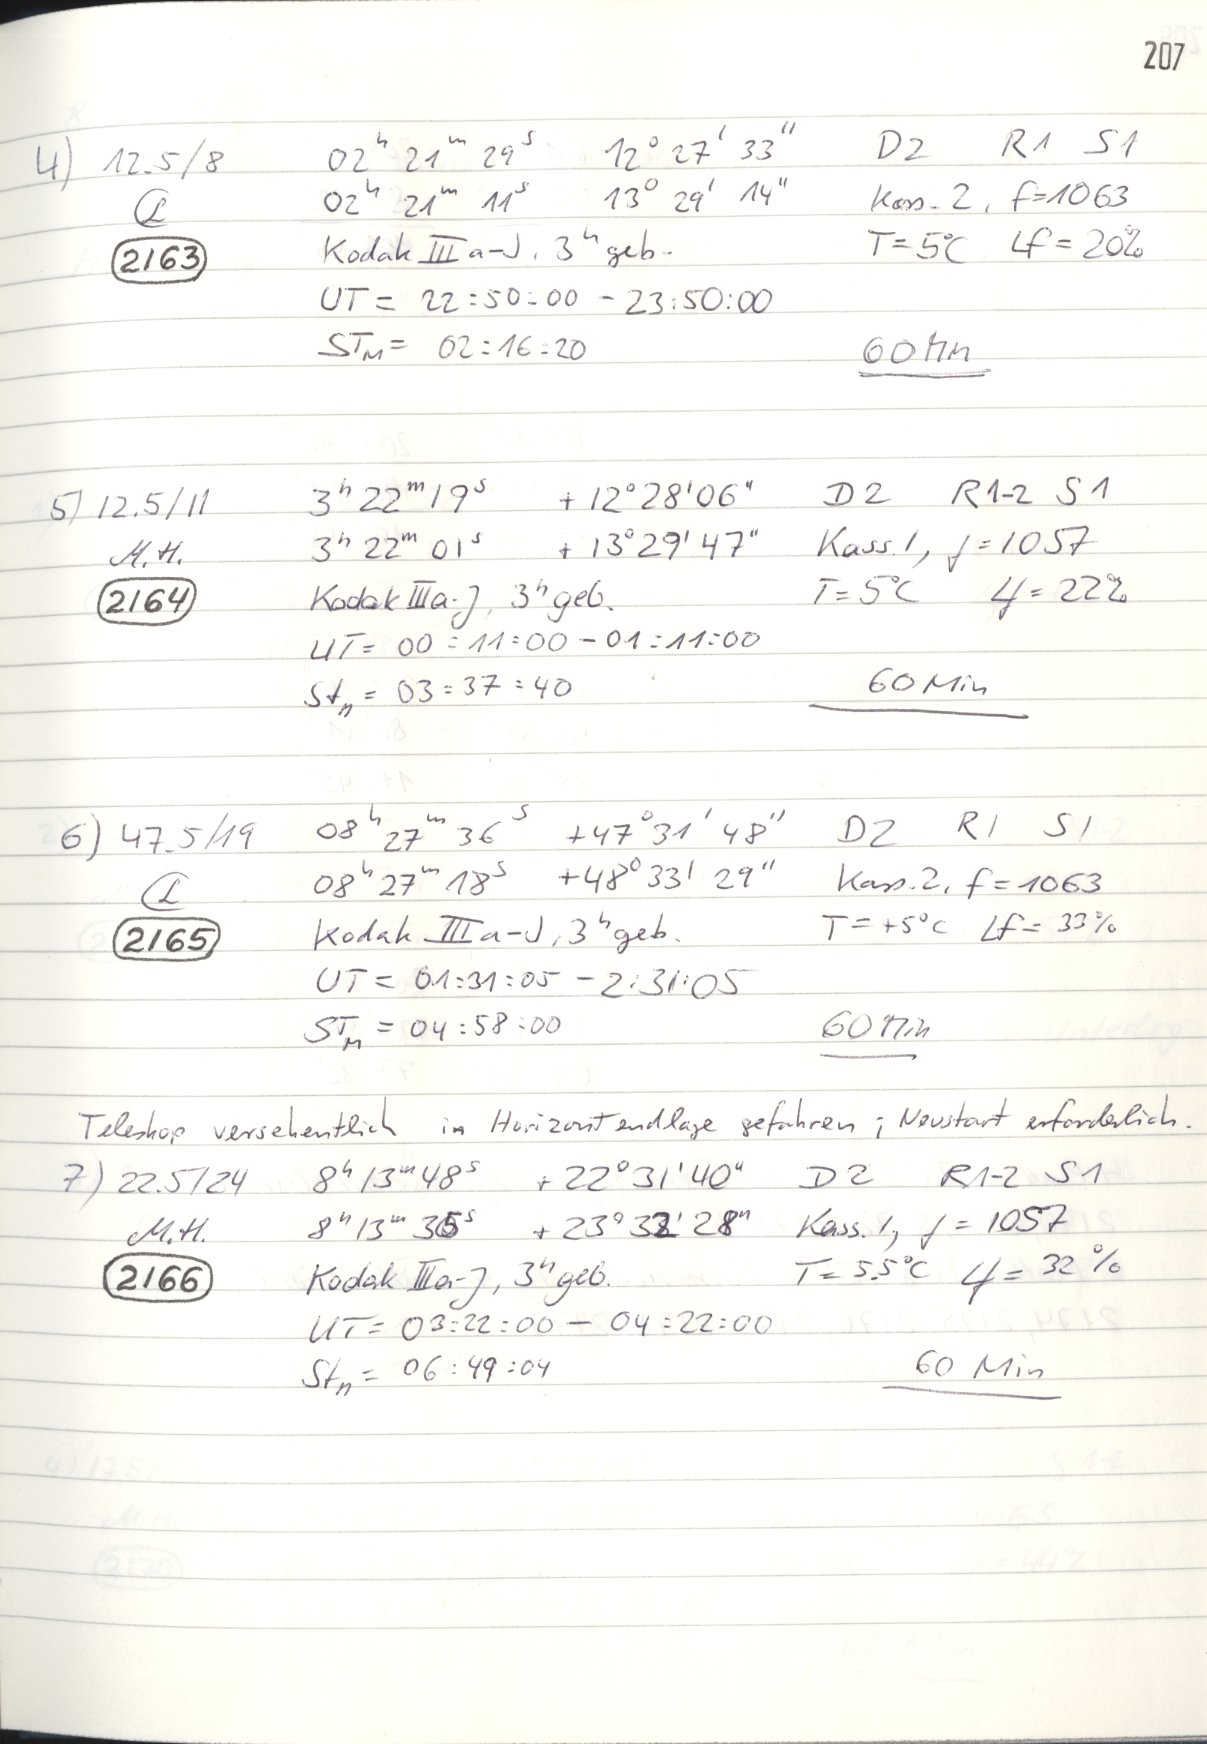 207
4) 12.5/8 02h 21m 29s 12° 27' 33" D2 R1 S1
02h 21m 11s 13° 29' 14" Kass. 2, f=1063
2163 Kodak IIIa-J, 3h geb. T=5°C Lf=20%
UT = 22:50:00 - 23:50:00
STM = 02:16:20 60 Min
5) 12.5/11 3h 22m 19s +12° 28' 06" D2 R1-2 S1
M.H. 3h 22m 01s +13° 29' 47" Kass. 1, f=1057
2164 Kodak IIIa-J, 3h geb. T=5°C Lf=22%
UT = 00:11:00 - 01:11:00
Stm = 03:37:40 60 Min
6) 47.5/19 08h 27m 36s +47° 31' 48" D2 R1 S1
08h 27m 18s +48° 33' 29" Kass. 2, f=1063
2165 Kodak IIIa-J, 3h geb. T=+5°C Lf=33%
UT = 01:31:05 - 2:31:05
STM = 04:58:00 60 Min
Teleskop versehentlich in Horizontendlage gefahren; Neustart erforderlich.
7) 22.5/24 8h 13m 48s +22° 31' 40" D2 R1-2 S1
M.H. 8h 13m 36s +23° 32' 28" Kass. 1, f=1057
2166 Kodak IIIa-J, 3h geb. T=5.5°C Lf=32%
UT = 03:22:00 - 04:22:00
Stm = 06:49:04 60 Min